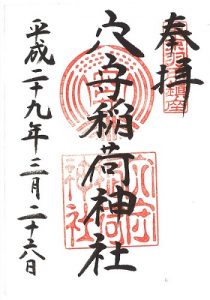 奉拝
穴守稲荷神社
平成二十九年三月二十六日